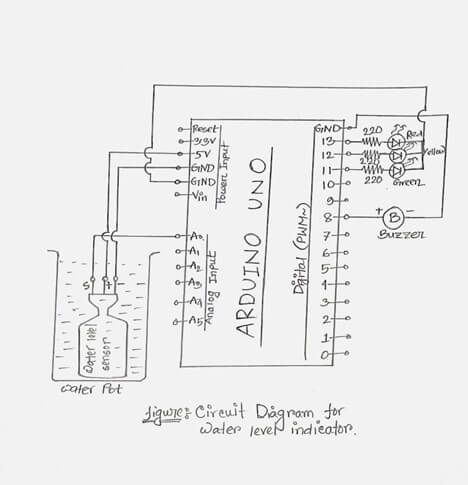 Reset
3.3V
5V
GND
GND
Vin
Power Input
A0
A1
A2
A3
A4
A5
Analog Input
ARDUINO UNO
Digital (PWM~)
GND
13
12
11
10
9
8
7
6
5
4
3
2
1
0
220
220
220
Red
Yellow
Green
+ B -
Buzzer
S + -
Water level
sensor
Water Pot
figure: Circuit Diagram for
Water level indicator.